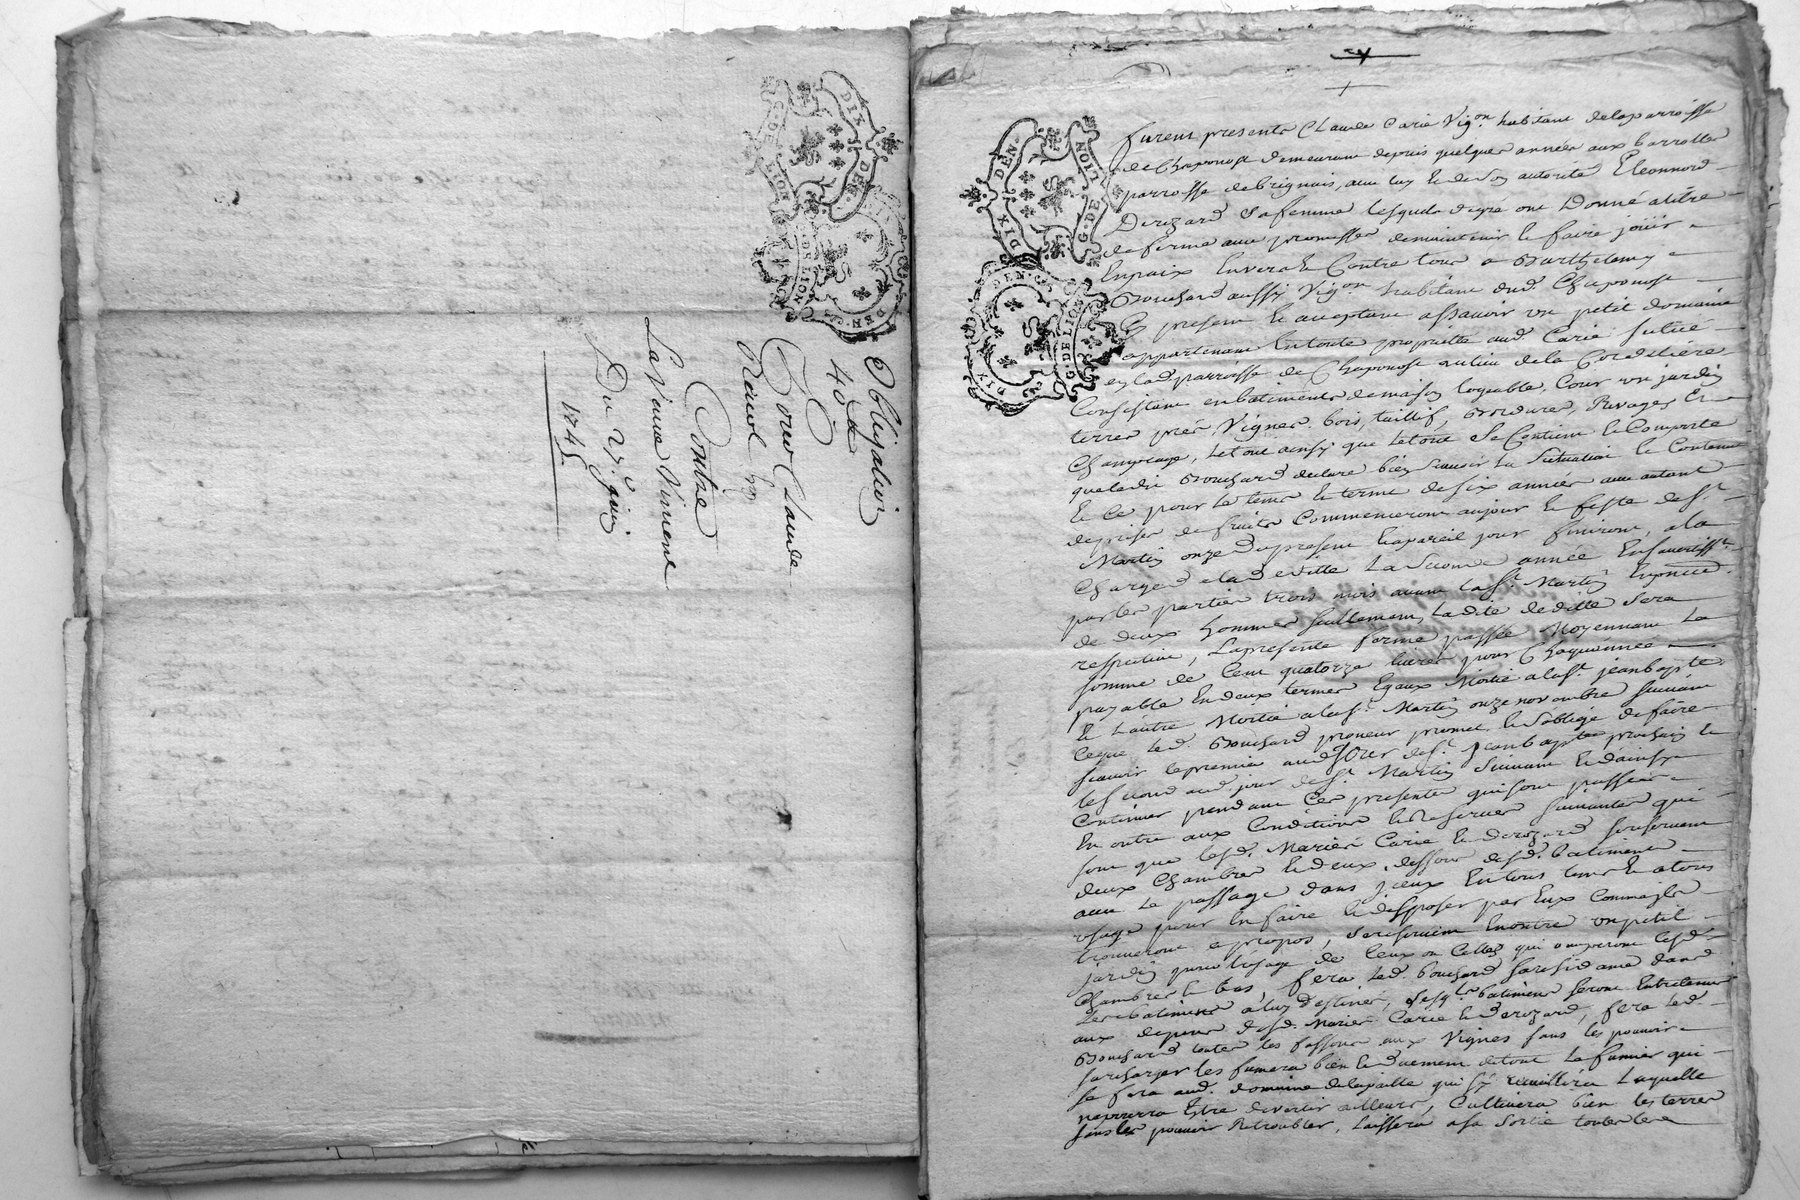 Obligation
40 ₶
Pour Claude
Contre
La jeune Vimene
Du
1745
DIX DEN.
G. DE LION
DIX DEN.
G. DE LION
DIX DEN.
G. DE LION
DIX DEN.
G. DE LION
furent presents Claude Carié Vig.on habitant delaparroisse
de Chaponost demeurant depuis quelques années aux barrottes
parroisse de brignais, avec luy & de son autorité Eleonnord
Derozard sa femme lesquels degré ont Donné atitre
de ferme avec promesse demaintenir & faire joüir
Enpaix Envers & Contre tous a Barthelemy
Bouchard aussy Vig.on habitant dud Chaponost
Cy present & acceptant assavoir un petit domaine
appartenant Entoute proprietté aud. Carié situé
en lad. parroisse de Chaponost au lieu dela Cordeliere
Consistant enbatiments de maison logeable, Cour un jardin
terres prés Vignes, bois, taillif, Bordures, Rivages &
Champeage, le tout ainsy que letout se Contient & Comporte
queledit Bouchard declare bien sçavoir la situation & Contenue
& ce pour le tems & terme de six années avec autant
deprises de fruits Commenceront aujour & feste de S.t
Martin onze du present & apareil jour finiront, ala
Charge de la deditte la seconde année Ensavertiss.t
par les parties trois mois avant la S.t Martin Enpncë.
de deux hommes seullement, ladite deditte sera
respective, Lapresente ferme passée Moyennant la
somme de Cent quatorze livres pour Chaque année
payable Endeux termes Egaux Moitié alaS.t jeanbapte
& Lautre Moitié alaS.t Martin onze novembre suivant
Ceque led. Bouchard preneur promet & Soblige defaire
scavoir lepremier aud jour de S.t Jeanbapte prochain &
lesecond aud jour de S.t Martin suivant & dainsy
Continuer pendant Ces presentes quisont passées
En outre aux Conditions & Reserves suivantes qui
sont que lesd. Mariés Carié & Derozard sereservent
deux Chambres & deux dessous desd. batiments
avec le passage dans jceux Entous tems & atous
usage pour En faire & disposer par Eux Commeils
trouveront apropos, sereservent Enoutre unpetit
jardin pour lusage de Ceux ou Celles qui occuperont lesd.
Chambres & bas, fera led. Bouchard sa residance dans
Les batiments aluy destinés, lesq.ls batiments seront Entretenus
aux depens desd. Mariés Carié & Derozard, fera led.
Bouchard toutes les fassons aux Vignes sans les pouvoir
surcharger les fumera bien & duement detout Lefumier qui
se fera aud. domaine delapaille qui sy recuillira Laquelle
nepourra Estre divertir ailleurs, Cultivera bien les terres
sans les pouvoir Retroubler, laissera asa sortie toutes les